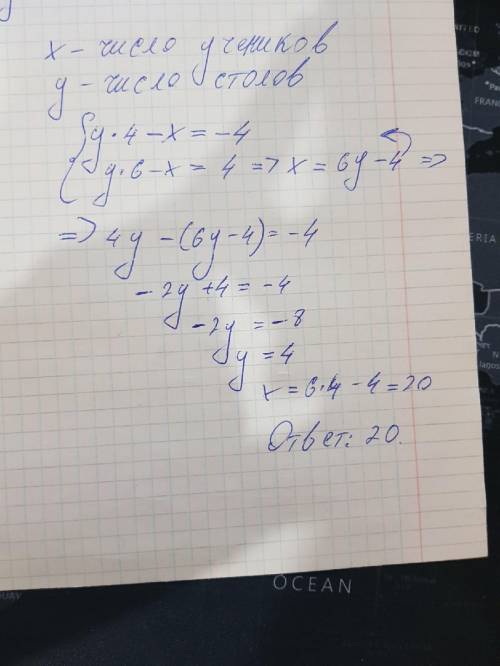 x - число учеников
y - число столов
y·4 - x = -4
y·6 - x = 4 => x = 6y - 4 =>
=> 4y - (6y - 4) = -4
-2y + 4 = -4
-2y = -8
y = 4
x = 6·4 - 4 = 20
Ответ: 20.
OCEAN